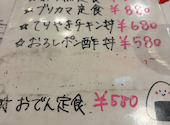 ・ブリカマ定食 ¥880
★てりやきチキン丼 ¥680
★おろしポン酢丼 ¥580
おでん定食 ¥580